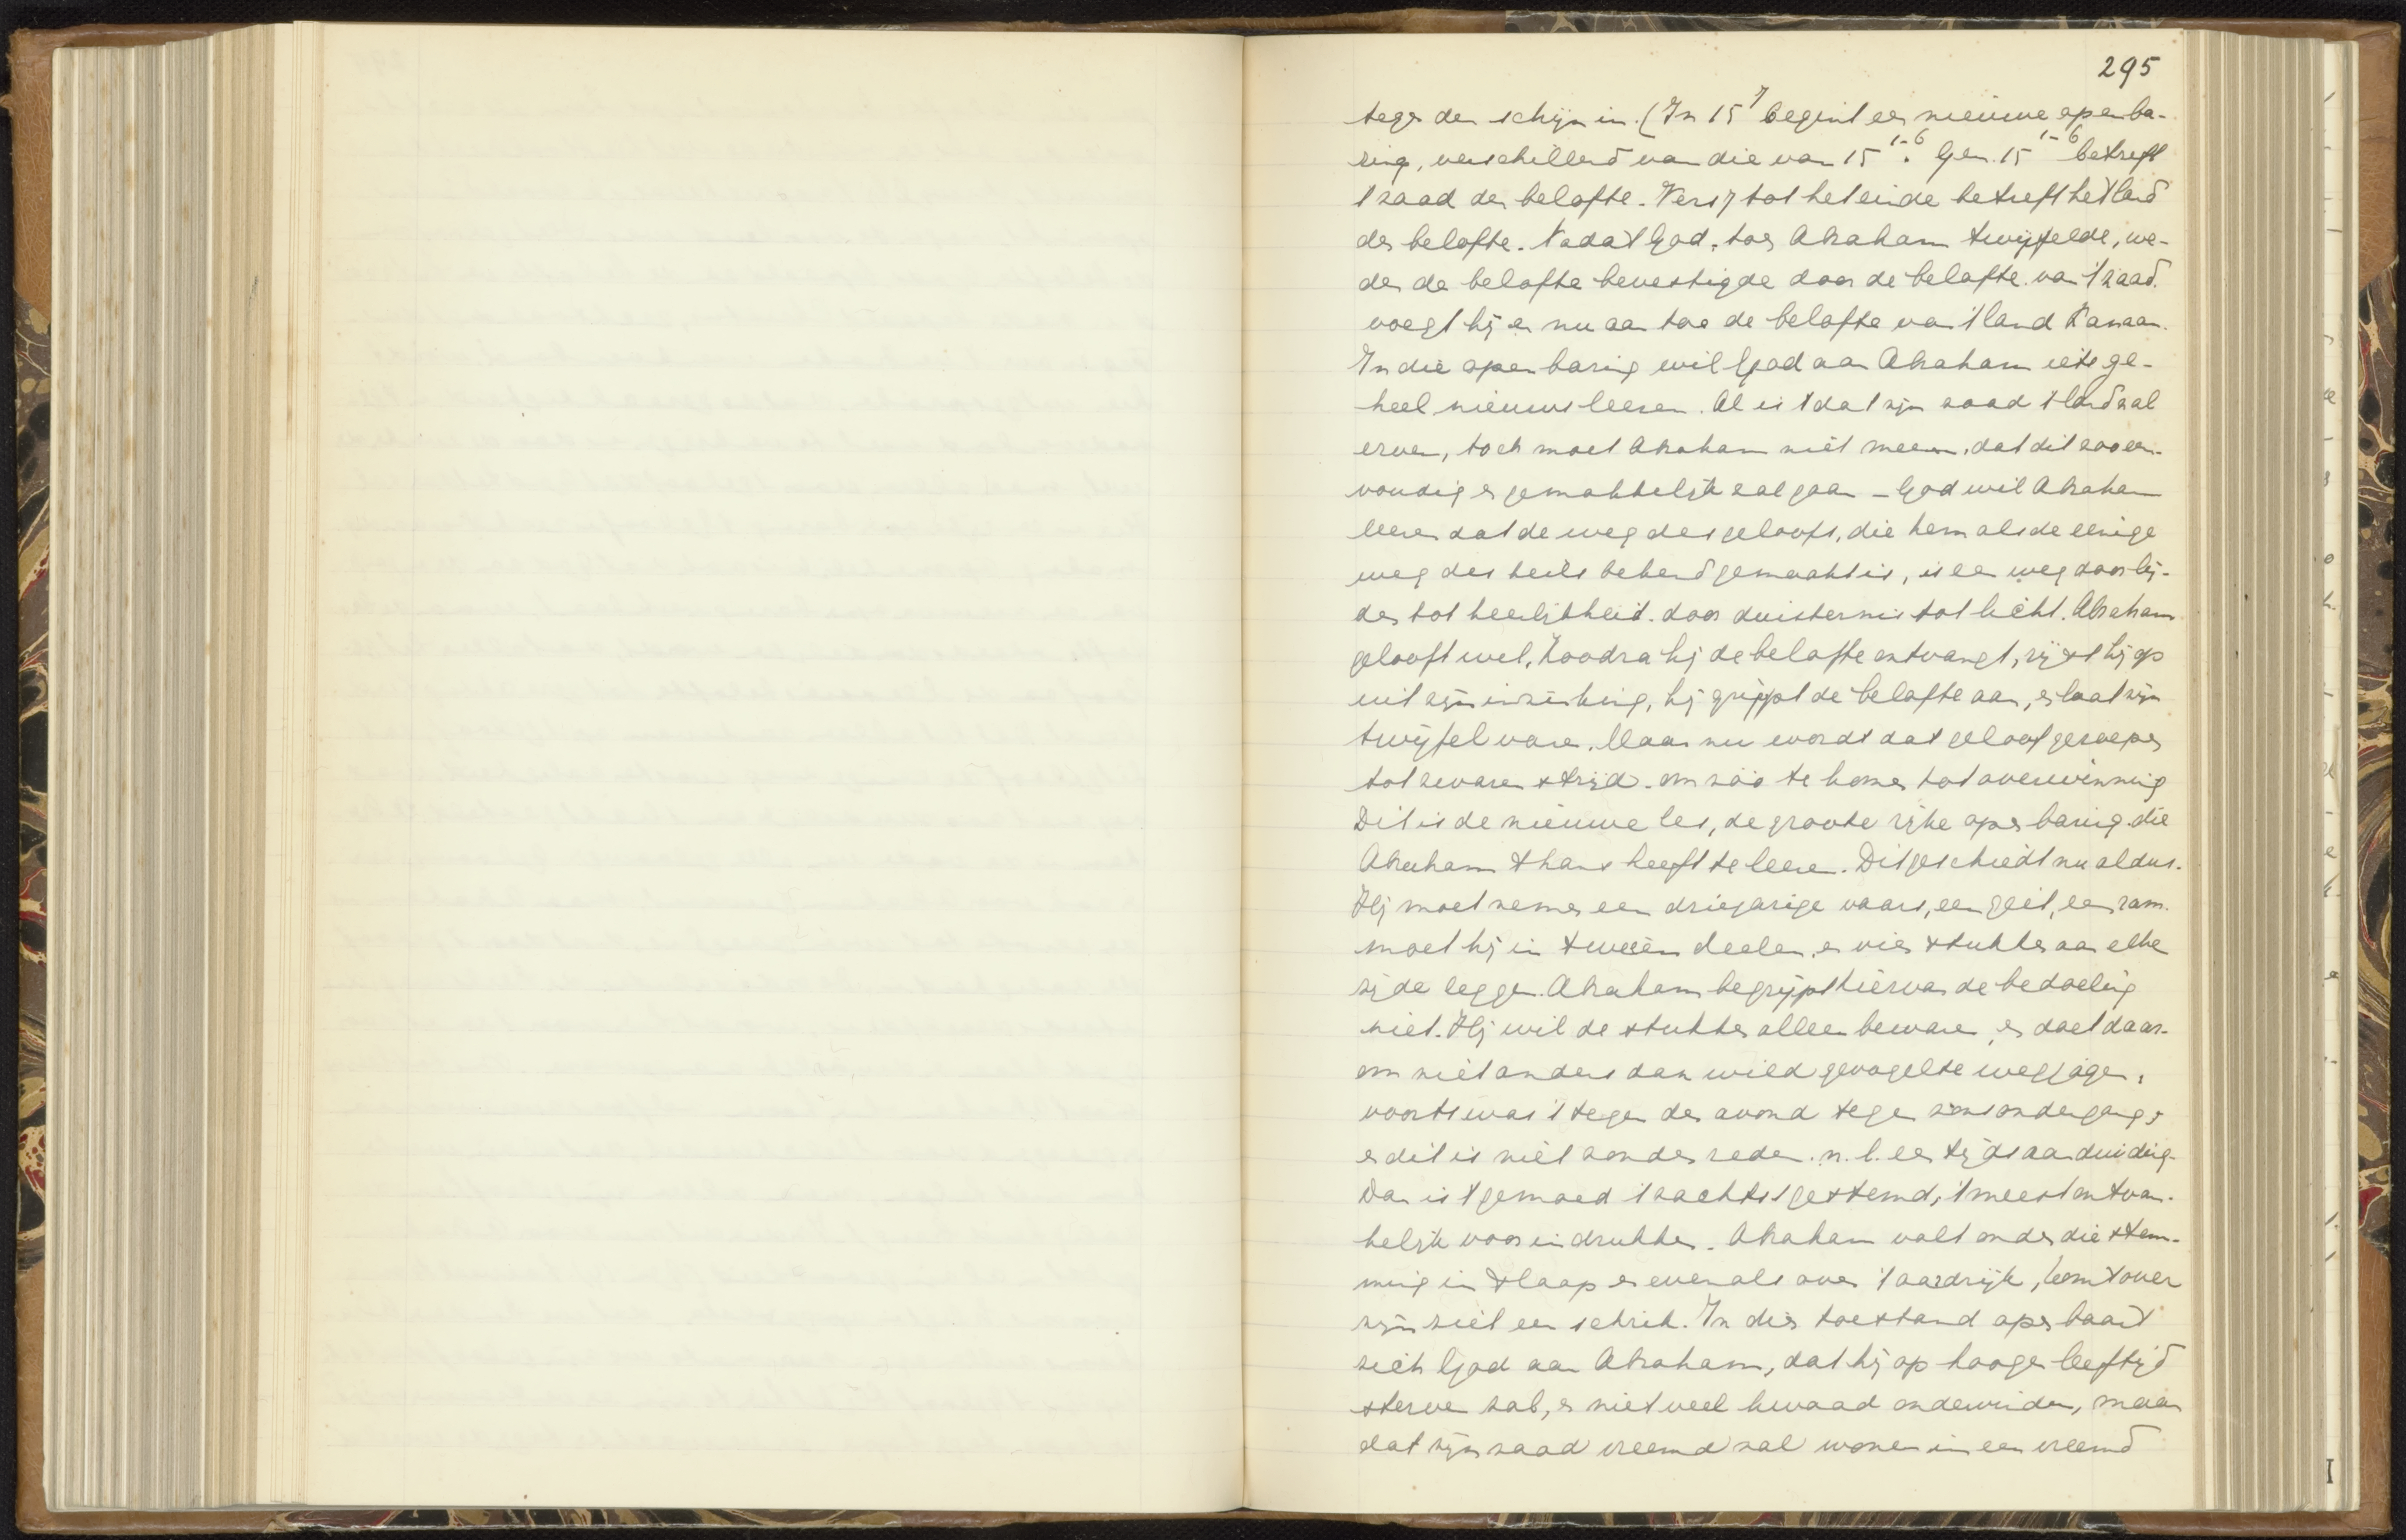 295
tegen den schijn in. (In 15 7 begint een nieuwe openba-
ring, verschillend van die van 15 1-6. Gen. 15 1-6 betreft
't zaad der belofte. Vers 7 tot het einde betreft het land
der belofte. Nadat God, toen Abraham twijfelde, we-
der de belofte bevestigde door de belofte van 't zaad.
voegt hij er nu aan toe de belofte van 't land Kanaan.
In die openbaring wil God aan Abraham iets ge-
heel nieuws leeren. Al is 't dat zijn zaad 't land zal
erven, toch moet Abraham niet meenen, dat dit zoo een-
voudig en gemakkelijk zal gaan - God wil Abraham
leeren dat de weg des geloofs, die hem als de eenige
weg des heils bekend gemaakt is, is een weg door lij-
den tot heerlijkheid. door duisternis tot licht. Abraham
gelooft wel, Zoodra hij de belofte ontvangt, rijst hij op
uit zijn inzinking, hij grijpt de belofte aan, en laat zijn
twijfel varen. Maar nu wordt dat geloof geroepen
tot zwaren strijd. om zóó te komen tot overwinning
Dit is de nieuwe les, de groote rijke openbaring die
Abraham thans heeft te leeren. Dit geschiedt nu aldus.
Hij moet nemen een driejarige vaars, een geit, een ram.
moet hij in tweeën deelen, en vier stukken aan elke
zijde leggen. Abraham begrijpt hiervan de bedoeling
niet. Hij wil de stukken alleen bewaren, en doet daar-
om niet anders dan wild gevogelte wegjagen.
voorts was 't tegen den avond tegen zonsondergang,
en dit is niet zonder reden. n.l. een tijdsaanduiding.
Dan is 't gemoed 't zachtst gestemd, 't meest ontvan-
kelijk voor indrukken. Abraham valt onder die stem-
ming in slaap en evenals over 't aardrijk, komt over
zijn ziel een schrik. In dien toestand openbaart
zich God aan Abraham, dat hij op hoogen leeftijd
sterven zal, en niet veel kwaad ondervinden, maar
dat zijn zaad vreemd zal wonen in een vreemd